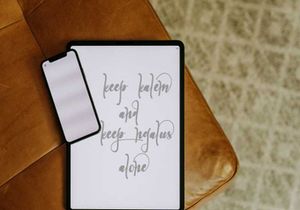 keep kalem
and
keep ngalus
alone